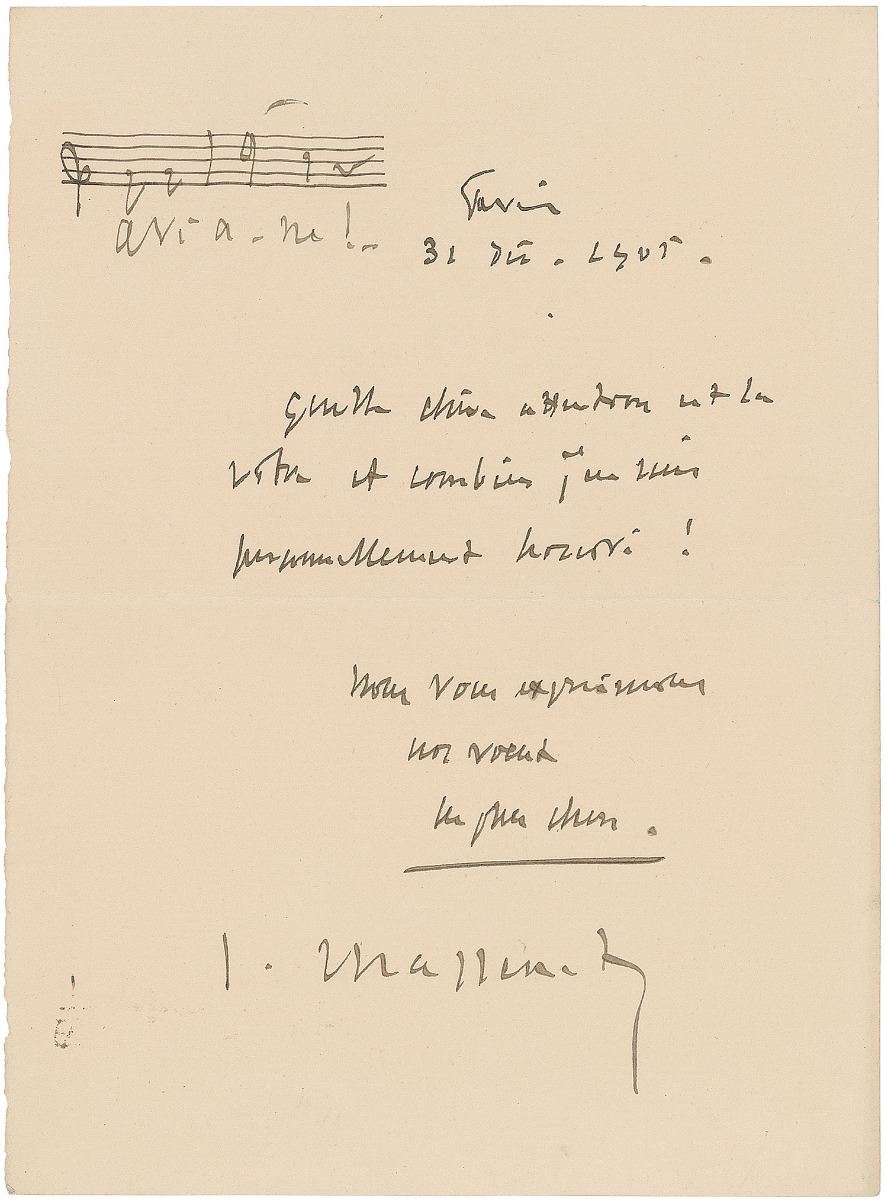 Ari a - ne !..
Paris
31 Déc. 1905.
Quelle chère attention est la
vôtre et combien j'en suis
personnellement honoré !
Nous vous exprimons
nos vœux
les plus chers.
J. Massenet